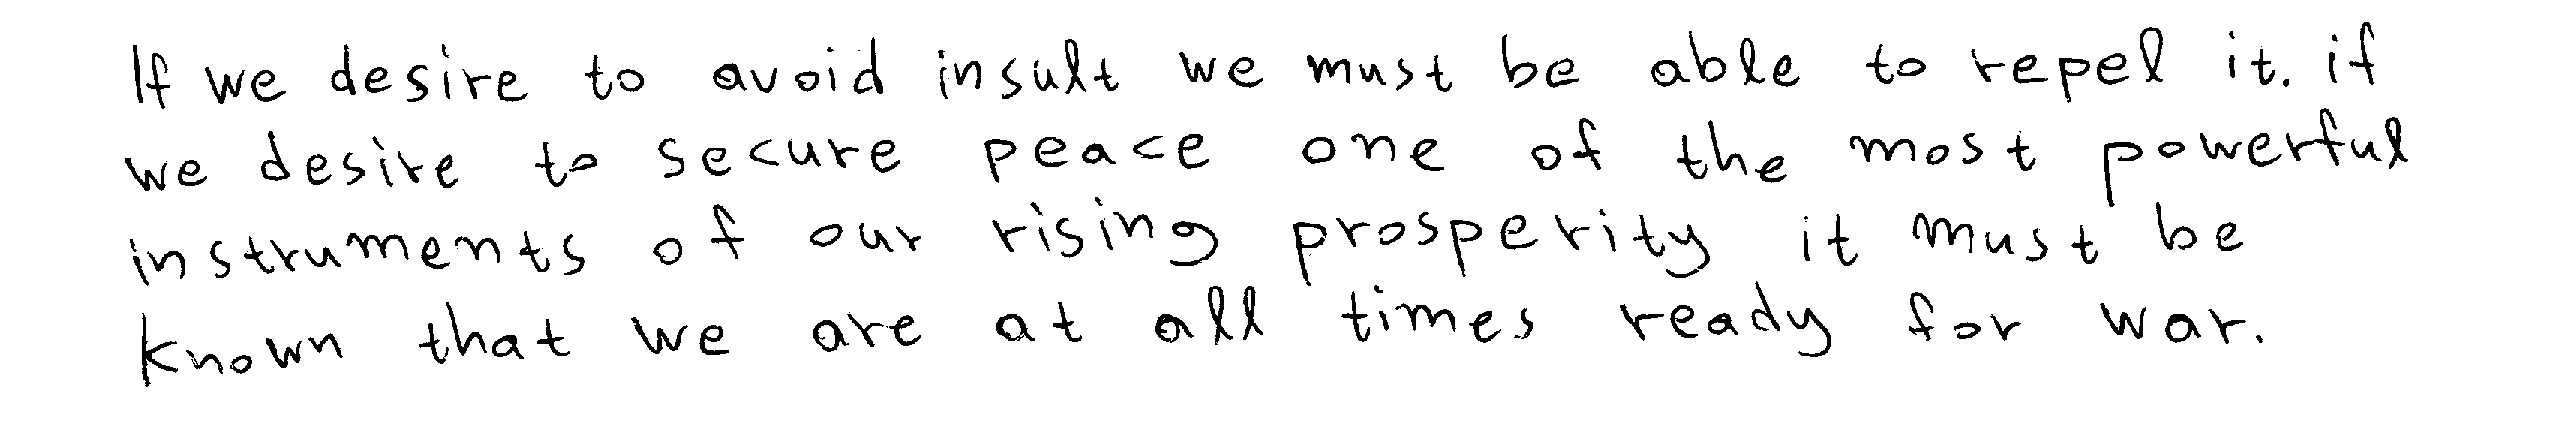 If we desire to avoid insult we must be able to repel it. if
we desire to secure peace one of the most powerful
instruments of our rising prosperity it must be
known that we are at all times ready for war.